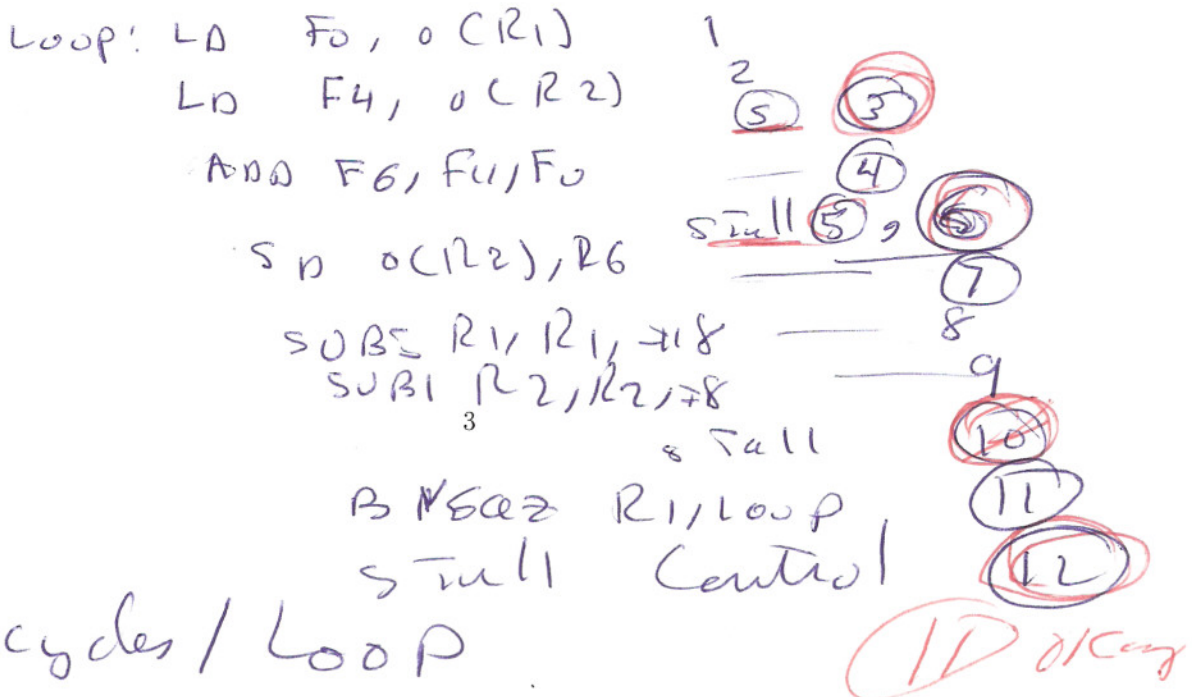 Loop: LD F0, 0(R1) 1
LD F4, 0(R2) 2
S 3
ADD F6, F4, F0 4
stall 5,
SD 0(R2), R6 7
SUBS R1, R1, #8 8
SUBI R2, R2, #8 9
3
stall 10
BNEQZ R1, LOOP 11
stall Control 12
cycles / Loop
okay